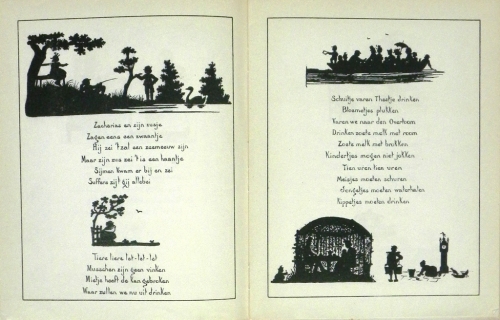 Zacharias en zijn zusje
Zagen eens een zwaantje
Hij zei 't zal een zeemeeuw zijn
Maar zijn zus zei 't is een haantje
Sijmen kwam er bij en zei
Suffers zijt gij allebei
Tiere tiere let-let-let
Musschen zijn geen vinken
Mietje heeft de kan gebroken
Waar zullen we nu uit drinken
Schuitje varen Theetje drinken
Bloemetjes plukken
Varen we naar den Overtoom
Drinken zoete melk met room
Zoete melk met brokken
Kindertjes mogen niet jokken
Tien uren tien uren
Meisjes moeten schuren
Jongetjes moeten waterhalen
Kippetjes moeten drinken